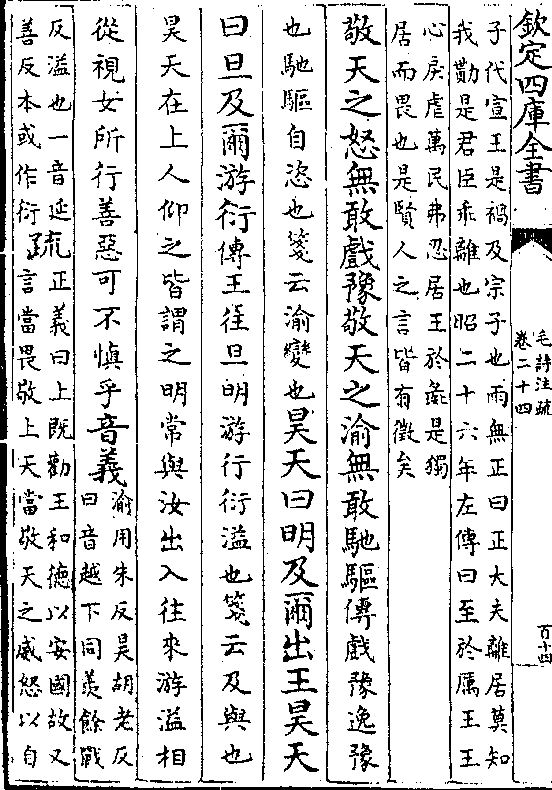 欽定四庫全書
毛詩注疏
卷二十四
百十四
子代宣王是禍及宗子也雨無正曰正大夫離居莫知
我勩是君臣乖離也昭二十六年左傳曰至於厲王王
心戾虐萬民弗忍居王於彘是獨
居而畏也是賢人之言皆有徵矣
敬天之怒無敢戲豫敬天之渝無敢馳驅傳戲豫逸豫
也馳驅自恣也箋云渝變也昊天曰明及爾出王昊天
曰旦及爾游衍傳王往旦明游行衍溢也箋云及與也
昊天在上人仰之皆謂之明常與汝出入往來游溢相
從視女所行善惡可不慎乎音義
渝用朱反昊胡老反
曰音越下同羨餘戰
反溢也一音延
善反本或作衍
疏
正義曰上既勸王和德以安國故又
言當畏敬上天當敬天之威怒以自